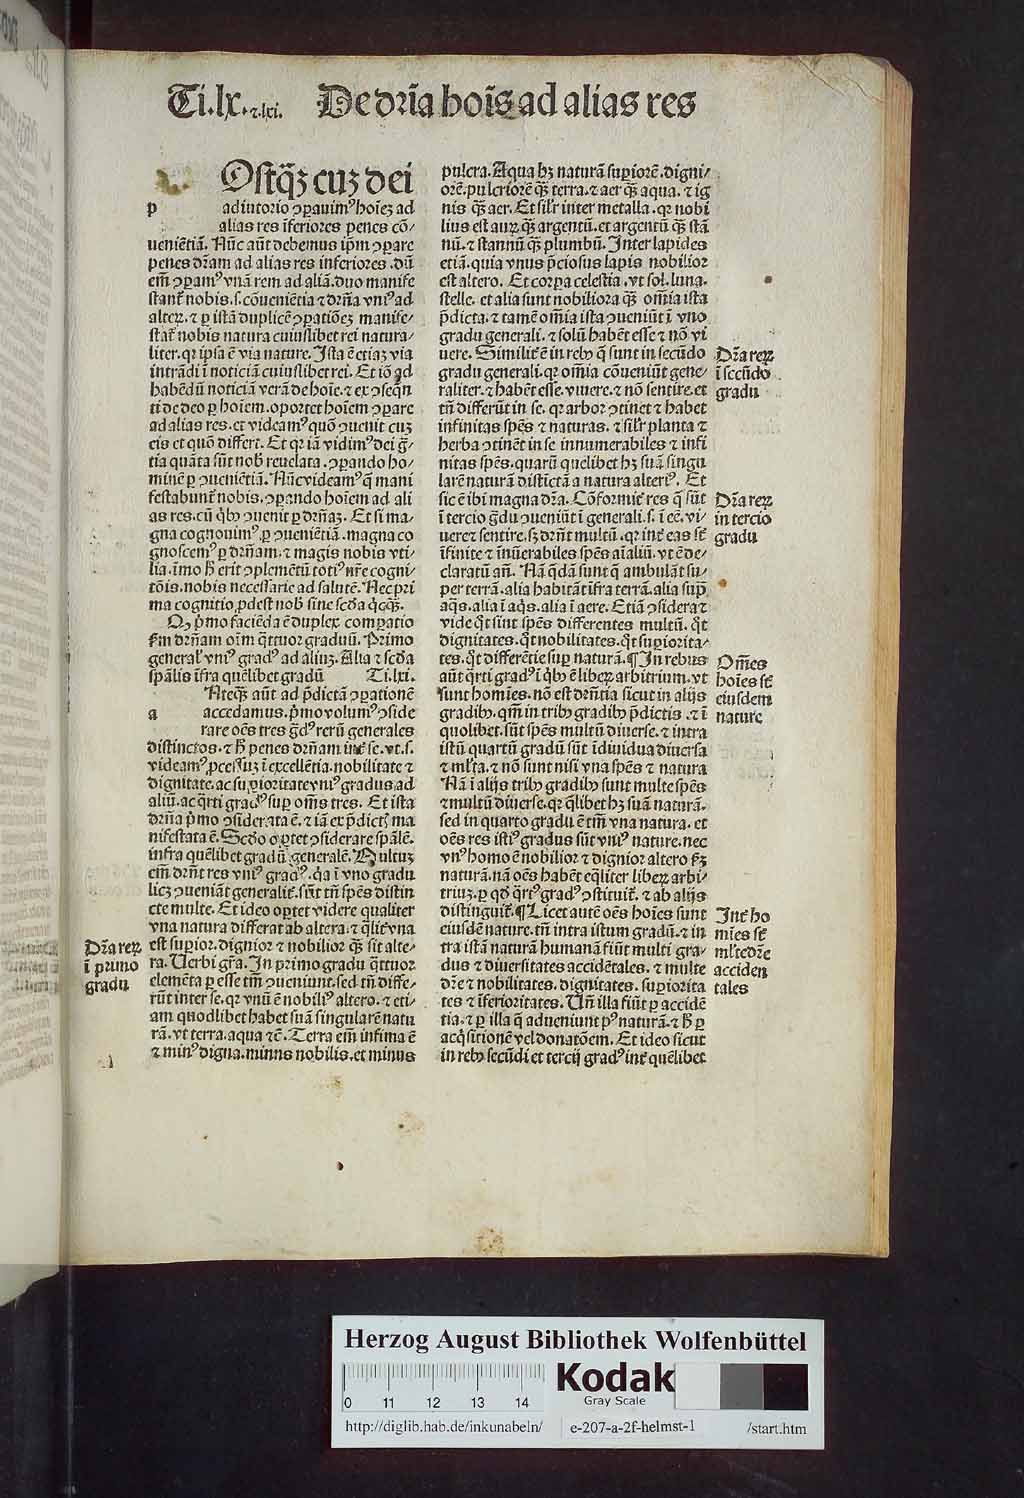 Ti.lx.⁊.lxi. De dr̄ia hoīs ad alias res
Ostq̄ꝫ cuꝫ dei
p adiutorio ꝯꝑauimꝰ hoīeꝫ ad
alias res īferiores penes cō/
ueniētiā. Nūc aūt debemus ip̄m ꝯꝑare
penes dr̄am ad alias res inferiores. dū
em̄ ꝯꝑamꝰ vnā rem ad aliā. duo manife
stant᷑ nobis. s. cōueniētia ⁊ dr̄ña vniꝰ ad
alteꝝ. ⁊ ꝑ istā duplicē ꝯꝑatiōeꝫ manife/
stat᷑ nobis natura cuiuslibet rei natura/
liter. qꝛ ipsa ē via nature. Ista ē etiaꝫ via
intrādi ī noticiā cuiuslibet rei. Et iō ad
habēdū noticiā verā de hoīe. ⁊ ex ꝯseq̄n
ti de deo ꝑ hoīem. oportet hoīem ꝯꝑare
ad alias res. et videamꝰ quō ꝯuenit cuꝫ
eis et quō differt. Et qꝛ iā vidimꝰ dei ḡ/
tia quāta sūt nob̄ reuelata. ꝯꝑando ho/
minē ꝑ ꝯueniētiā. Nūc videamꝰ q̄ mani
festabunt᷑ nobis. ꝯꝑando hoīem ad ali
as res. cū qͥbꝰ ꝯuenit ꝑ dr̄ñaꝫ. Et si ma/
gna cognouimꝰ. ꝑ ꝯueniētiā. magna co
gnoscemꝰ ꝑ dr̄ñam. ⁊ magis nobis vti/
lia. īmo h̄ erit ꝯplemētū totiꝰ nr̄e cogni/
tōis. nobis necessarie ad salutē. Nec pri
ma cognitio ꝓdest nob̄ sine scd̄a qͥcqͣꝫ.
Qꝫ pͥmo faciēda ē duplex comꝑatio
ẜm dr̄ñam oīm q̄ttuor graduū. Primo
general᷑ vniꝰ gradꝰ ad aliuꝫ. Alia ⁊ scd̄a
spālis īfra quēlibet gradū Ti.lxi.
Nteqͣꝫ aūt ad p̄dictā ꝯꝑationē
a accedamus. pͥmo volumꝰ ꝯside
rare oēs tres ḡdꝰ reꝝ generales
distinctos. ⁊ h̄ penes dr̄ñam int᷑ se. vt. s.
videamꝰ ꝓcessuꝫ ī excellētia. nobilitate ⁊
dignitate. ac suꝑioritate vniꝰ gradus ad
aliū. ac qͣrti gradꝰ suꝑ om̄s tres. Et ista
dr̄ña pͥmo ꝯsiderata ē. ⁊ iā ex p̄dict᷑ ma
nifestata ē. Scd̄o oꝑtet ꝯsiderare spālē.
infra quēlibet gradū generalē. Multuꝫ
em̄ dr̄nt res vniꝰ gradꝰ. qͣ ī vno gradu
licꝫ ꝯueniāt generalit᷑. sūt tn̄ spēs distin
cte multe. Et ideo oꝑtet videre qualiter
vna natura differat ab altera. ⁊ q̄lit᷑ vna
est suꝑior. dignior ⁊ nobilior qͣꝫ sit alte/
ra. Verbi gr̄a. In primo gradu q̄ttuor
elemēta ꝑ esse tm̄ ꝯueniunt. sed tn̄ diffe/
rūt inter se. qꝛ vnū ē nobiliꝰ altero. ⁊ eti/
am quodlibet habet suā singularē natu
rā. vt terra. aqua ⁊c̄. Terra em̄ infima ē
⁊ minꝰ digna. minus nobilis. et minus
Dr̄ia reꝝ
ī primo
gradu
pulcra. Aqua hꝫ naturā suꝑiorē. digni/
orē. pulcriorē qͣꝫ terra. ⁊ aer qͣꝫ aqua. ⁊ ig
nis qͣꝫ aer. Et sil᷑r inter metalla. qꝛ nobi
lius est auꝝ qͣꝫ argentū. et argentū qͣꝫ stā
nū. ⁊ stannū qͣꝫ plumbū. Inter lapides
etiā. quia vnus p̄ciosus lapis nobilior
est altero. Et corꝑa celestia. vt sol. luna.
stelle. et alia sunt nobiliora qͣꝫ om̄ia ista
p̄dicta. ⁊ tamē om̄ia ista ꝯueniūt ī vno
gradu generali. ⁊ solū habēt esse ⁊ nō vi
uere. Similit᷑ ē in rebꝰ q̄ sunt in secūdo
gradu generali. qꝛ om̄ia cōueniūt gene/
raliter. ⁊ habēt esse. viuere. ⁊ nō sentire. et
tn̄ differūt in se. qꝛ arbor ꝯtinet ⁊ habet
infinitas spēs ⁊ naturas. ⁊ sil᷑r planta ⁊
herba ꝯtinēt in se innumerabiles ⁊ infi
nitas spēs. quarū quelibet hꝫ suā singu
larē naturā distictā a natura alteriꝰ. Et
sic ē ibi magna dr̄a. Cōformit᷑ res q̄ sūt
ī tercio ḡdu ꝯueniūt ī generali. s. ī eē. vi/
uere ⁊ sentire. sꝫ dr̄nt multū. qꝛ int᷑ eas st̄
īfinite ⁊ īnūerabiles spēs aīaliū. vt ē de/
claratū añ. Nā q̄dā sunt q̄ ambulāt su/
per terrā. alia habitāt īfra terrā. alia supͣ
aqͣs. alia ī aqͣs. alia ī aere. Etiā ꝯsidera ⁊
vide qͦt sint spēs differentes multū. qͦt
dignitates. qͦt nobilitates. qͦt suꝑiorita/
tes. qͦt differētie suꝑ naturā. ¶ In rebus
aūt qͣrti gradꝰ ī qͥbꝰ ē libeꝝ arbitrium. vt
sunt homīes. nō est dr̄ñtia sicut in alijs
gradibꝰ. qm̄ in tribꝰ gradibꝰ p̄dictis. ⁊ ī
quolibet. sūt spēs multū diuerse. ⁊ intra
istū quartū gradū sūt īdiuidua diuersa
⁊ ml᷑ta. ⁊ nō sunt nisi vna spēs ⁊ natura
Nā ī alijs tribꝰ gradibꝰ sunt multe spēs
⁊ multū diuerse. qꝛ q̄libet hꝫ suā naturā.
sed in quarto gradu ē tm̄ vna natura. et
oēs res istiꝰ gradus sūt vniꝰ nature. nec
vnꝰ homo ē nobilior ⁊ dignior altero ẜꝫ
naturā. nā oēs habēt eq̄liter libeꝝ arbi/
triuꝫ. ꝑ qd̄ qͣrtꝰ gradꝰ ꝯstituit᷑. ⁊ ab alijs
distinguit᷑. ¶ Licet autē oēs hoīes sunt
eiusdē nature. tn̄ intra istum gradū. ⁊ in
tra istā naturā humanā fiūt multi gra/
dus ⁊ diuersitates accidētales. ⁊ multe
dr̄e ⁊ nobilitates. dignitates. suꝑiorita
tes ⁊ īferioritates. Vn̄ illa fiūt ꝑ accidē
tia. ⁊ ꝑ illa q̄ adueniunt pꝰ naturā. ⁊ h̄ ꝑ
acqͥsitionē vel donatōem. Et ideo sicut
in rebꝰ secūdi et tercij gradꝰ int᷑ quēlibet
Dr̄a reꝝ
ī secūdo
gradu
Dr̄a reꝝ
in tercio
gradu
Om̄es
hoīes st̄
eiusdem
nature
Int᷑ ho
mīes st̄
ml᷑te dr̄e
acciden
tales
Herzog August Bibliothek Wolfenbüttel
Kodak
Gray Scale
0 11 12 13 14
http://diglib.hab.de/inkunabeln/ e-207-a-2f-helmst-1 /start.htm